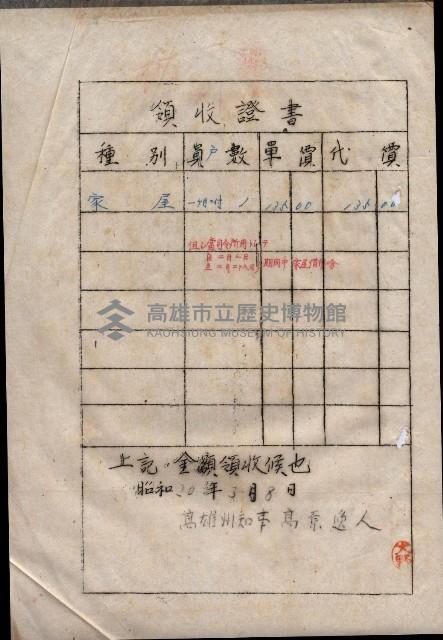 領收證書
種別 員戶數 單價 代價
家屋 1 135 00 135 00
自二月
至二月二十八日 期間中 家屋借
高雄市立歷史博物館
KAOHSIUNG MUSEUM OF HISTORY
上記ノ金額領收候也
昭和20年3月8日
高雄州知事 高原逸人